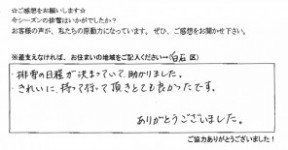 ☆ご感想をお願いします☆
今シーズンの排雪はいかがでしたか？
お客様の声が、私たちの原動力になっています。ぜひ、ご感想をお聞かせ下さい。
※差支えなければ、お住まいの地域をご記入ください→(白石 区)
排雪の日程が決まっていて、助かりました。
きれいに、持って行って頂きとても良かったです。
ありがとうございました。
ご協力ありがとうございました！